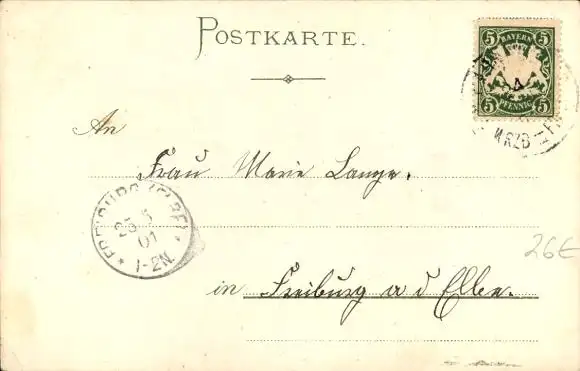 POSTKARTE.
5 BAYERN 5
5 PFENNIG 5
4
MRZ 0
An
Frau Marie Lange.
FREIBURG (ELBE)
25 3
01
1-2N.
26€
in Freiburg a d Elbe.